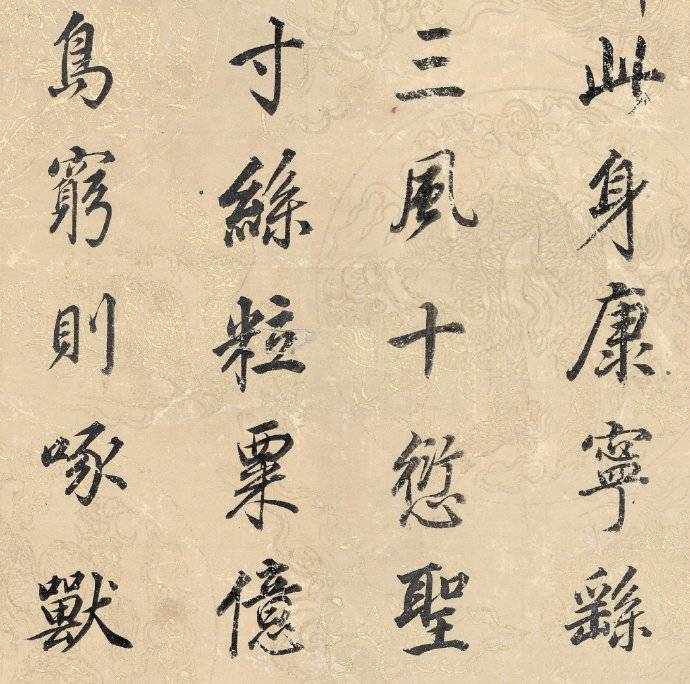 此身康寧繇
三風十愆聖
寸絲粒粟億
鳥窮則啄獸